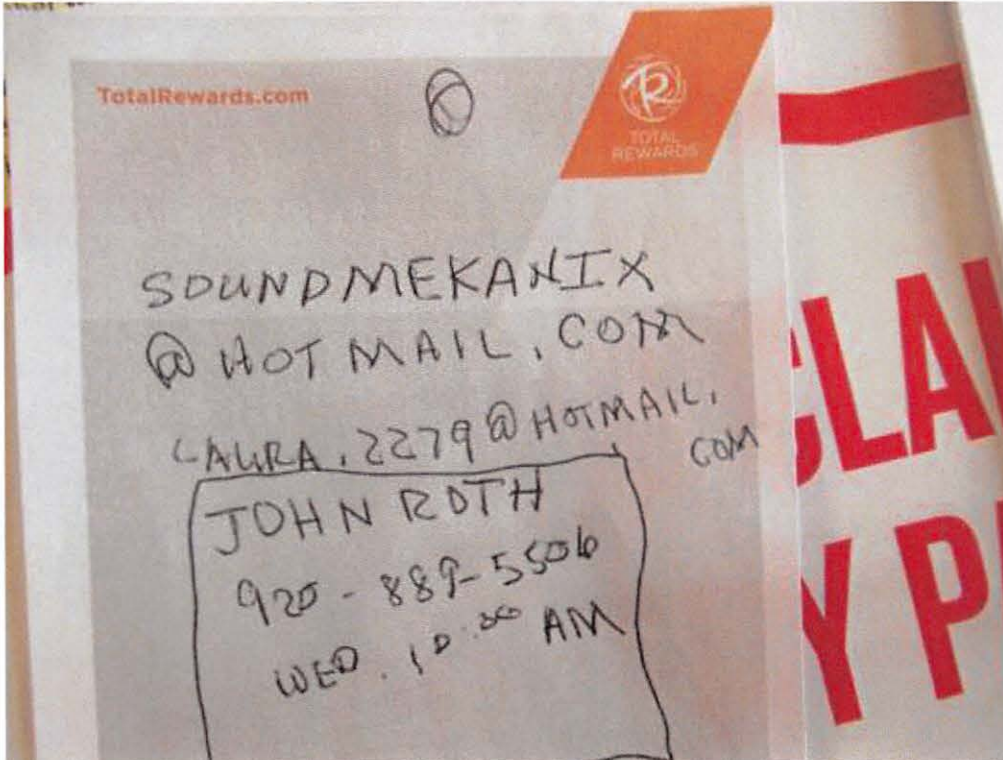 TotalRewards.com
TOTAL
REWARDS
SOUNDMEKANIX
@ HOTMAIL.COM
LAURA.2279@HOTMAIL.
COM
JOHN ROTH
920-889-5506
WED. 10:00 AM
CLAI
Y P